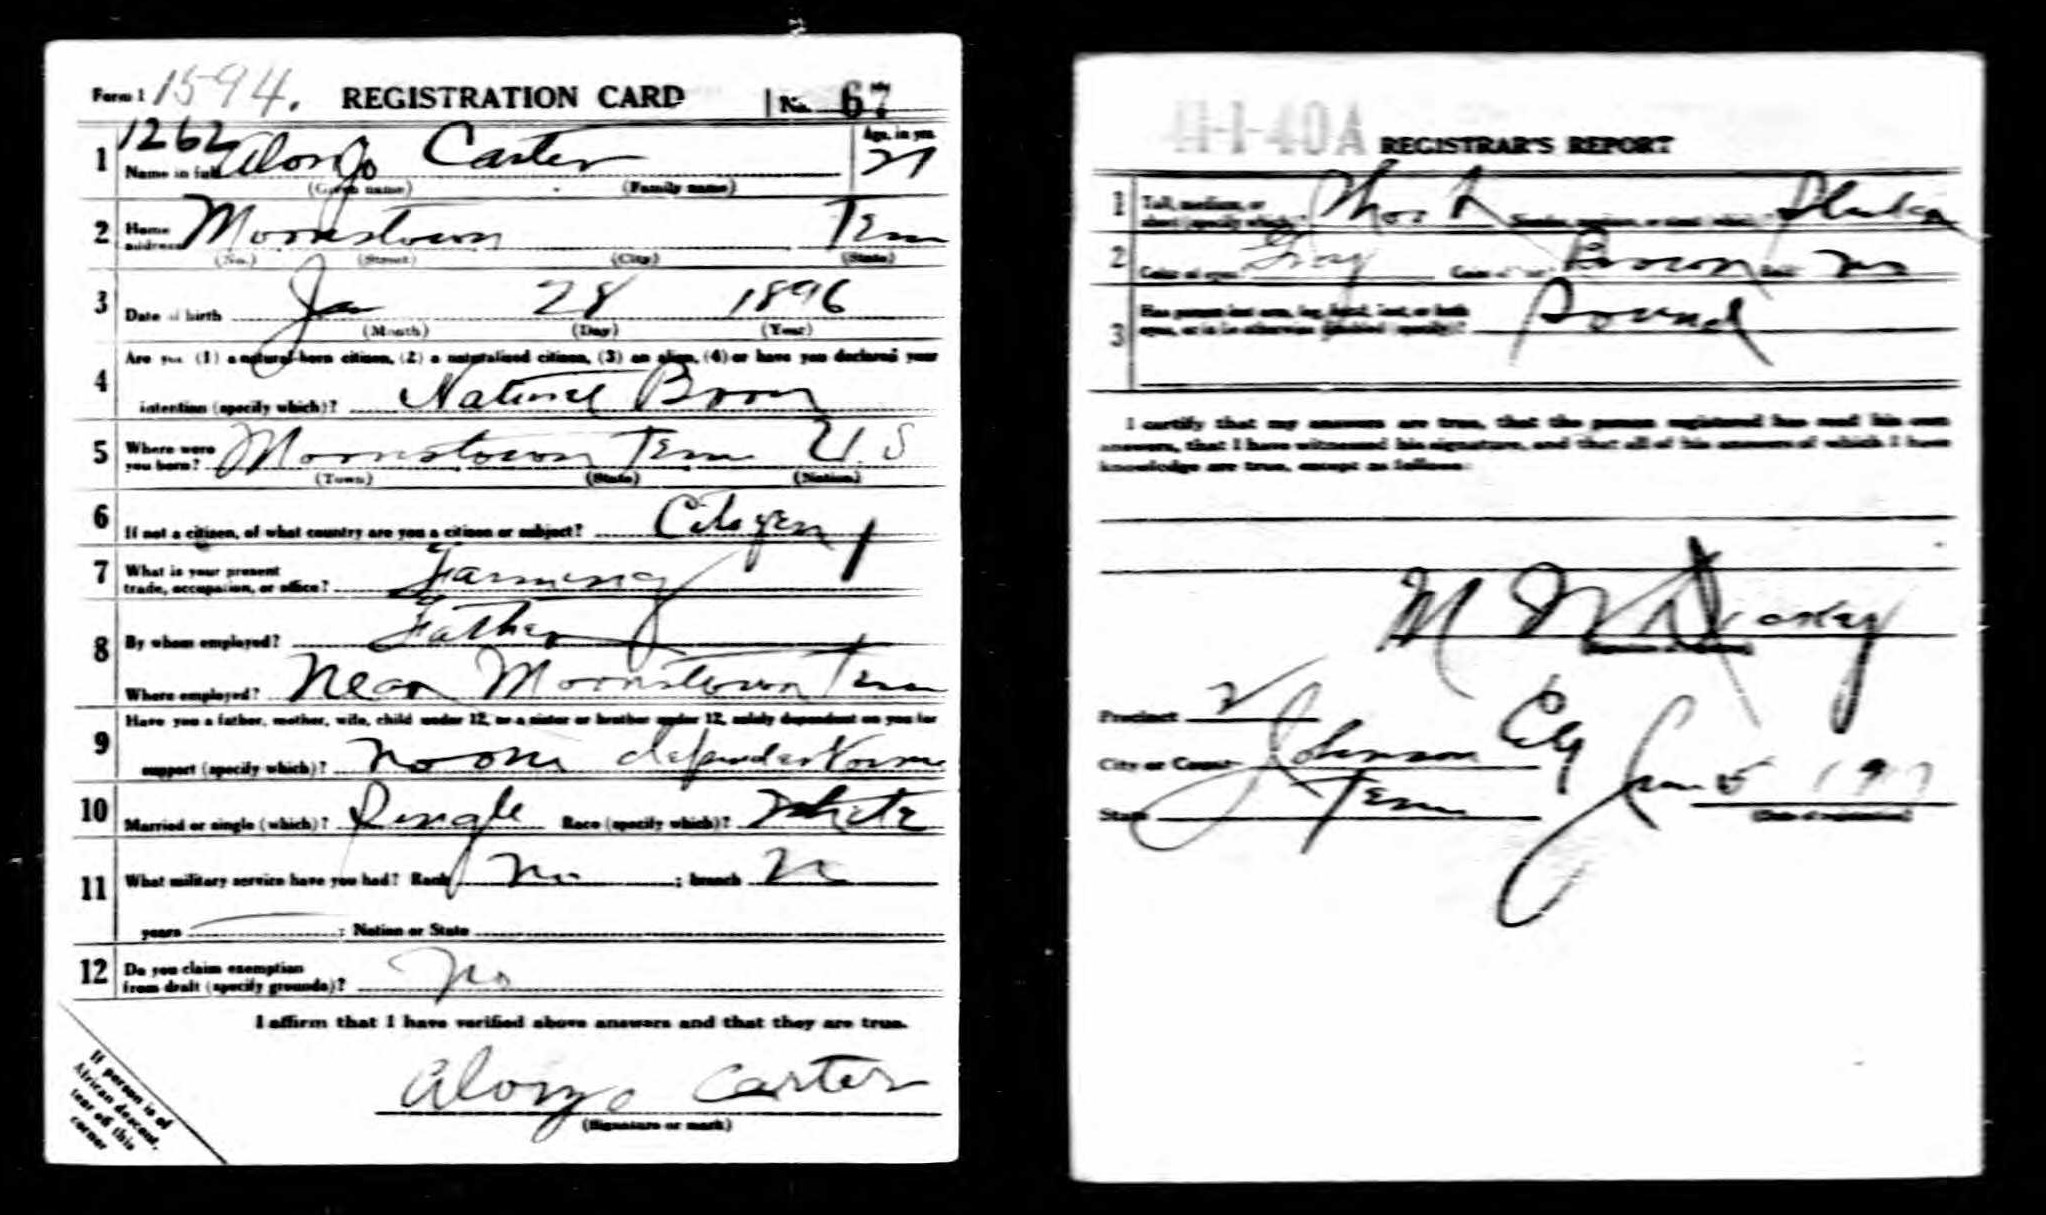 Form 1 1594. REGISTRATION CARD No. 67
1262
1 Name in full Alonzo Carter Age, in yrs. 21
(Given name) (Family name)
2 Home address Moorestown Tenn
(No.) (Street) (City) (State)
3 Date of birth Jan 28 1896
(Month) (Day) (Year)
4 Are you (1) a natural-born citizen, (2) a naturalized citizen, (3) an alien, (4) or have you declared your
intention (specify which)? Natural Born
5 Where were you born? Moorestown Tenn U.S
(Town) (State) (Nation)
6 If not a citizen, of what country are you a citizen or subject? Citizen
7 What is your present trade, occupation, or office? Farming
8 By whom employed? Father
Where employed? Near Moorestown Tenn
9 Have you a father, mother, wife, child under 12, or a sister or brother under 12, solely dependent on you for
support (specify which)? no one dependent
10 Married or single (which)? Single Race (specify which)? White
11 What military service have you had? Rank no ; branch no
years ; Nation or State
12 Do you claim exemption from draft (specify grounds)? No
I affirm that I have verified above answers and that they are true.
Alonzo Carter
(Signature or mark)
If person is of
African descent,
tear off this
corner
41-1-40A REGISTRAR'S REPORT
1 Tall, medium, or short (specify which)? Short Slender, medium, or stout (which)? Slender
2 Color of eyes? Gray Color of hair? Brown Bald? no
3 Has person lost arm, leg, hand, foot, or both eyes, or is he otherwise disabled (specify)? Sound
I certify that my answers are true, that the person registered has read his own
answers, that I have witnessed his signature, and that all of his answers of which I have
knowledge are true, except as follows:
M
Precinct 2
City or County Johnson City
State Tenn June 5 1917
(Date of registration)